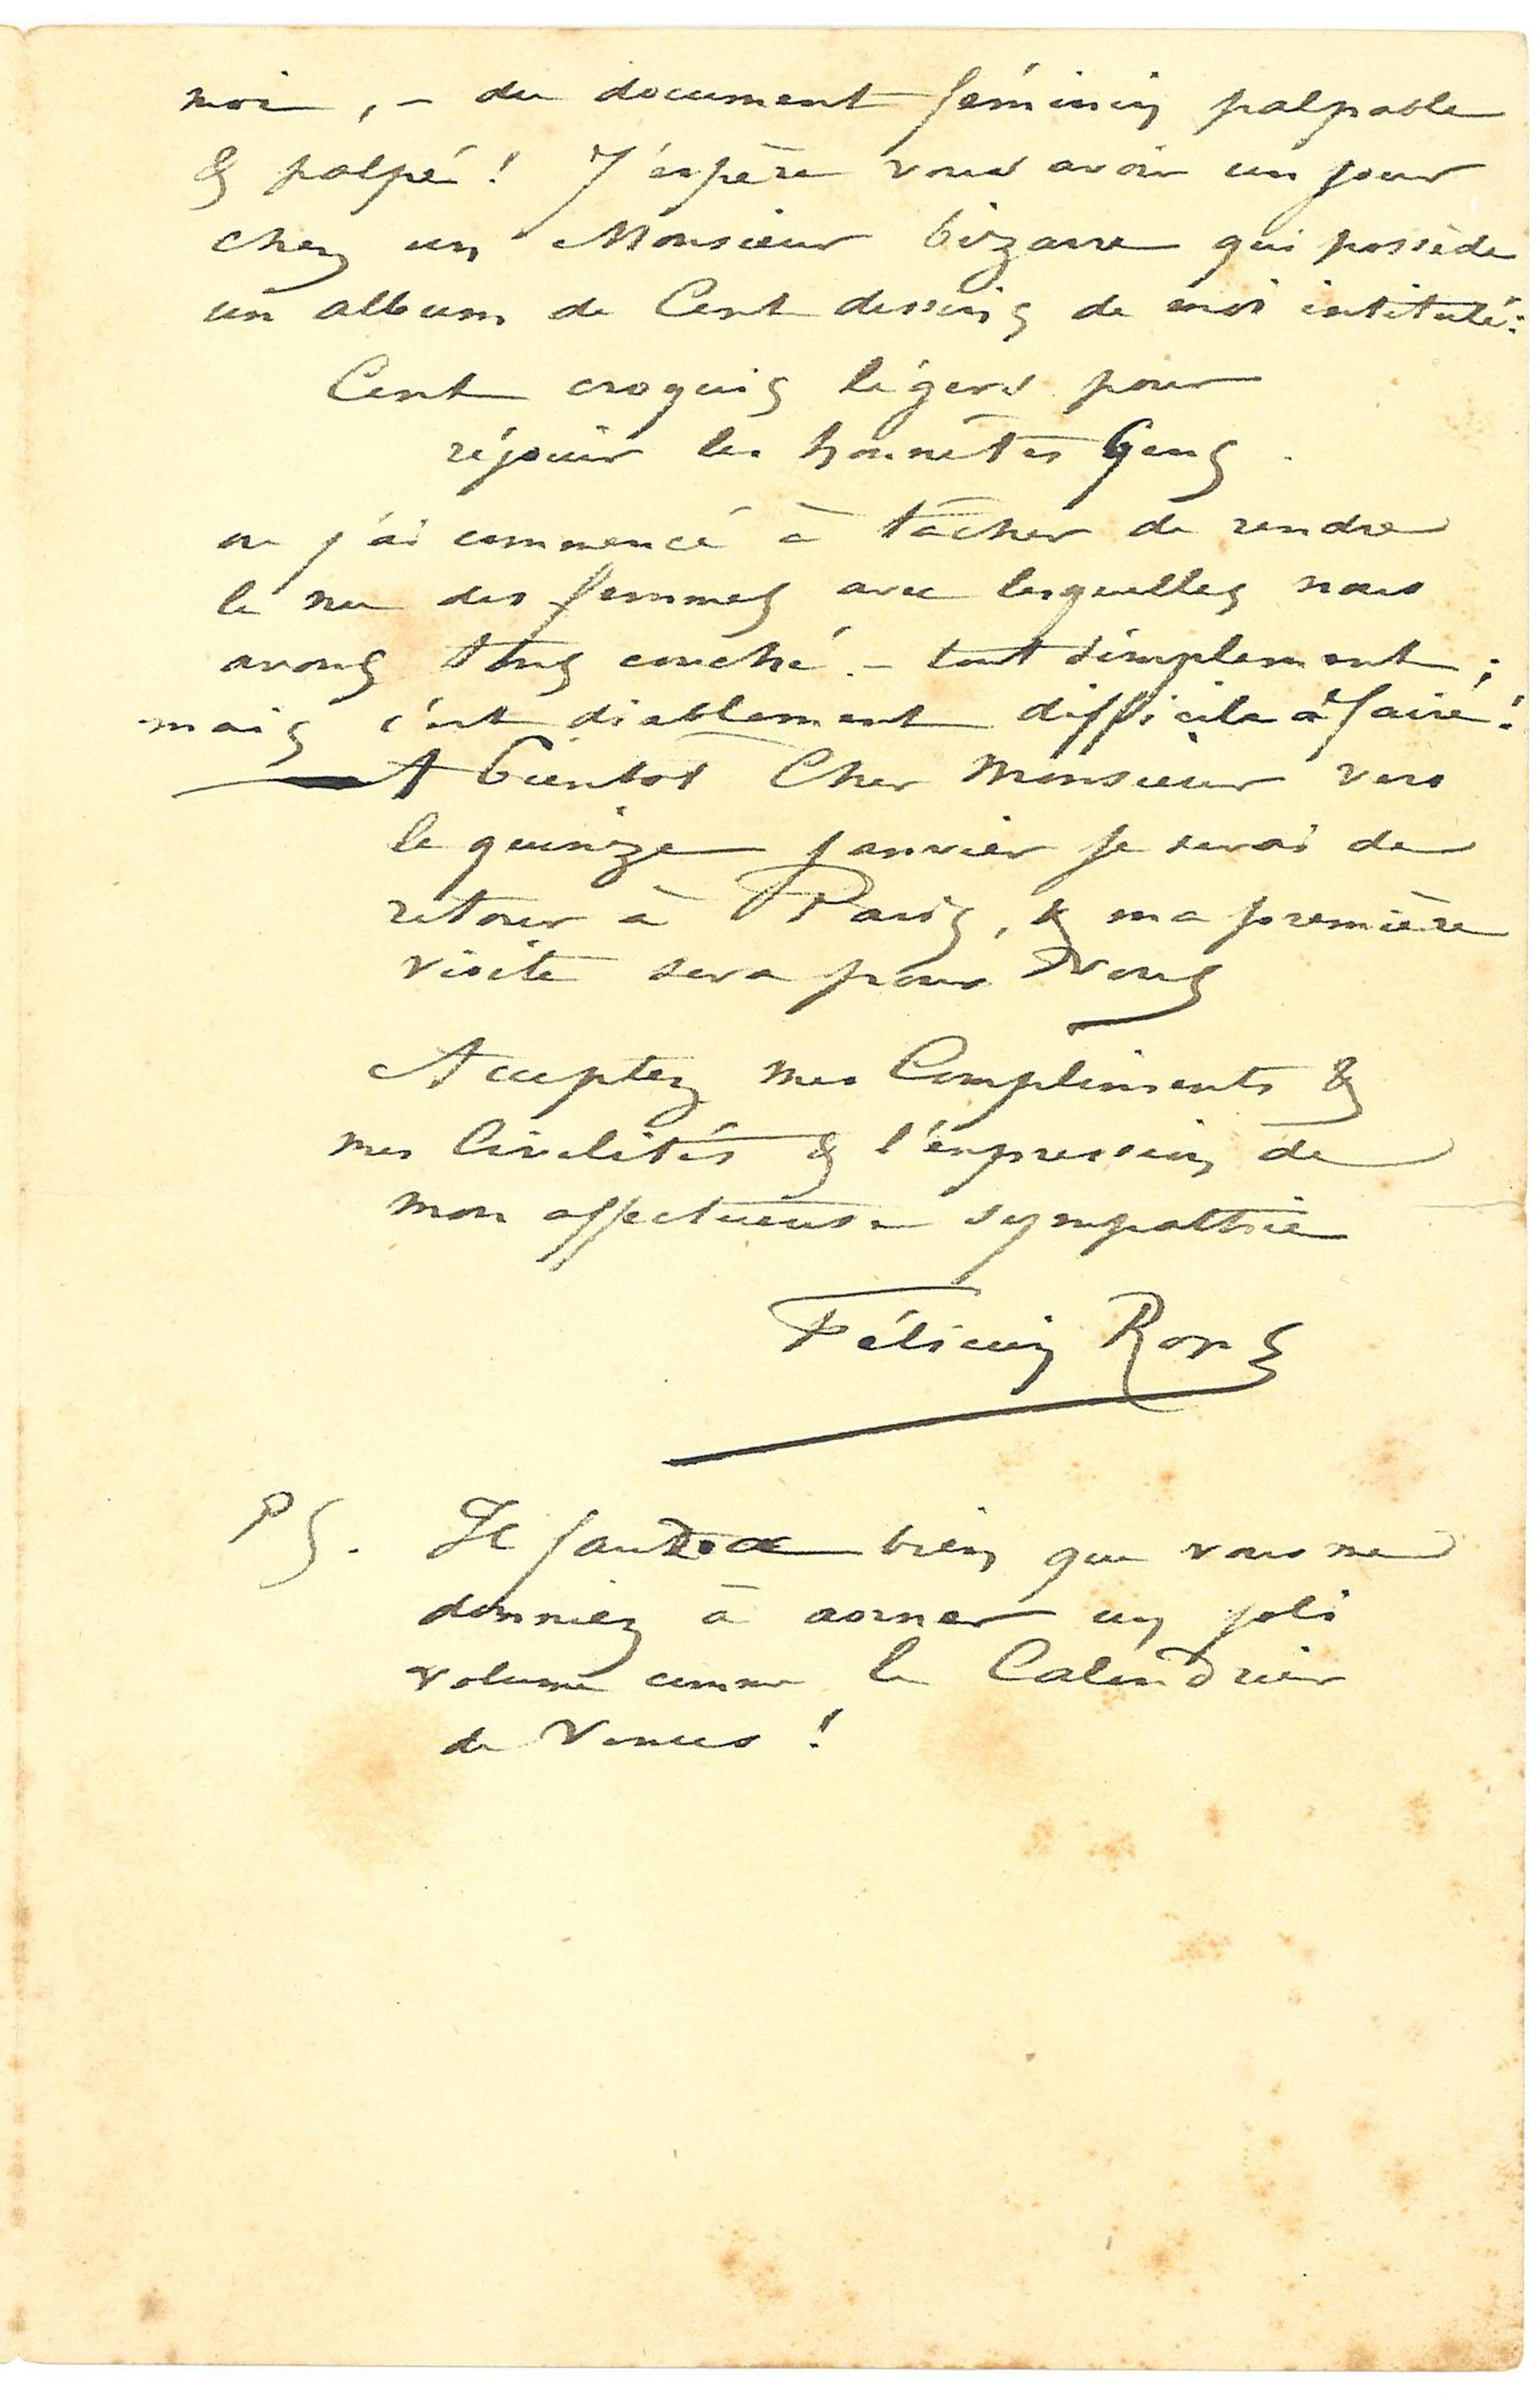 moi, – du document féminin palpable
& palpé ! J'espère vous avoir un jour
chez un Monsieur bizarre qui possède
un album de Cent dessins de moi intitulé :
Cent croquis légers pour
réjouir les honnêtes Gens.
où j'ai commencé à tâcher de rendre
le nu des femmes avec lesquelles nous
avons tous couché. – tout simplement ;
mais c'est diablement difficile à faire !
A bientôt Cher Monsieur vers
le quinze janvier je serai de
retour à Paris, & ma première
visite sera pour vous
Acceptez mes Compliments &
mes Civilités & l'expression de
mon affectueuse sympathie
Félicien Rops
PS. Il faudra bien que vous me
donniez à aorner un joli
volume comme le Calendrier
de Venus !